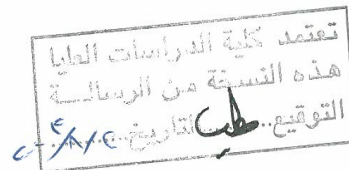 تعتمد كلية الدراسات العليا
هذه النسخة من الرسالــة
التوقيع.... التاريخ....